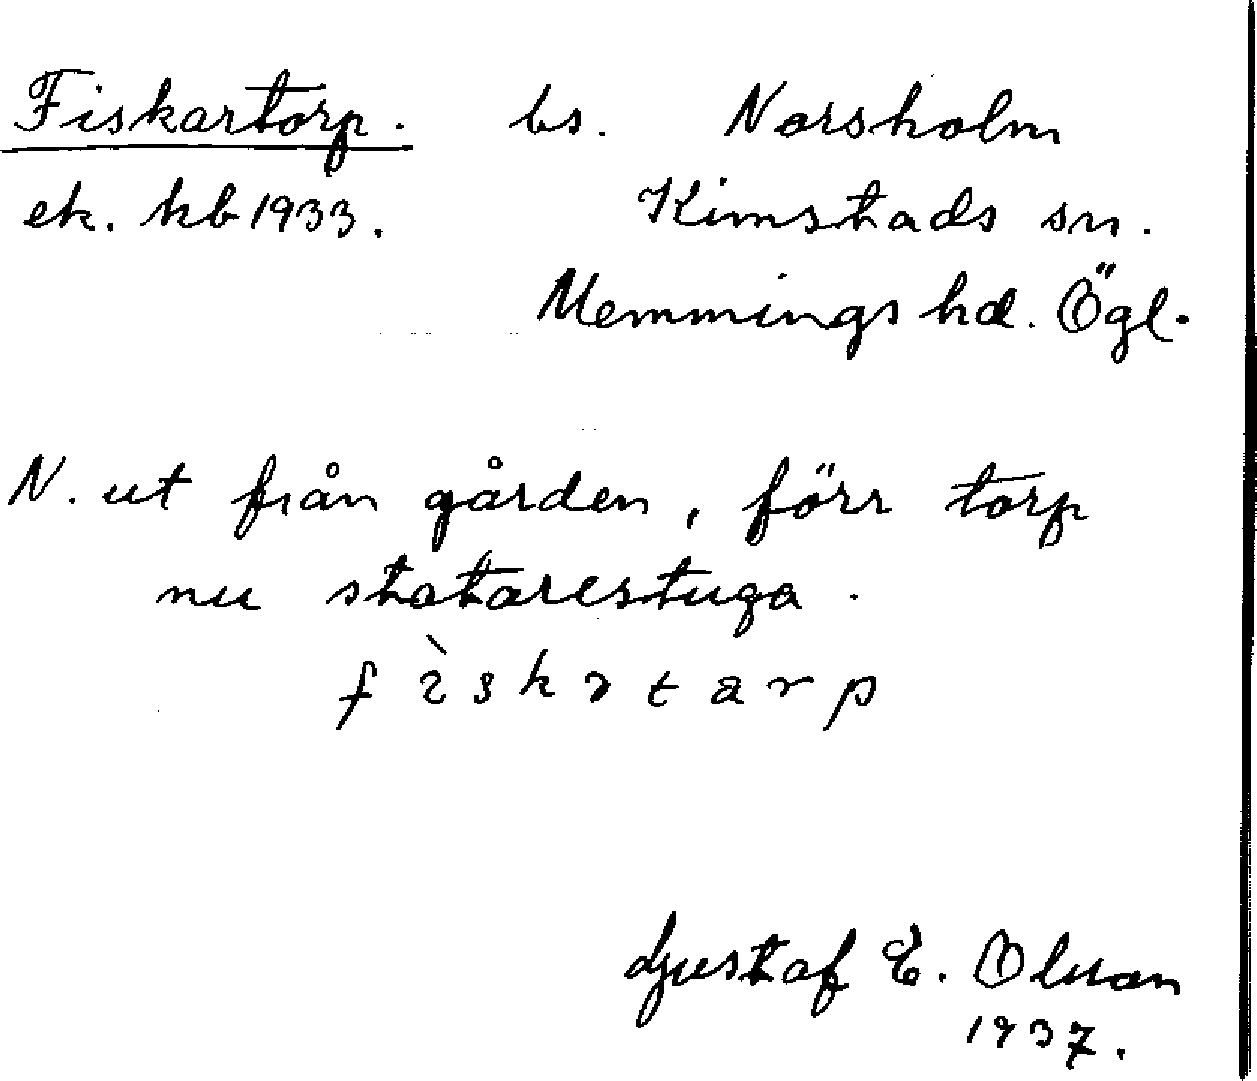 Fiskartorp. bs. Norsholm
ek. kb 1933. Kimstads sn.
Memmings hd. Ögl.
N. ut från gården, förr torp
nu statarestuga.
Gustaf E. Olsson
1937.